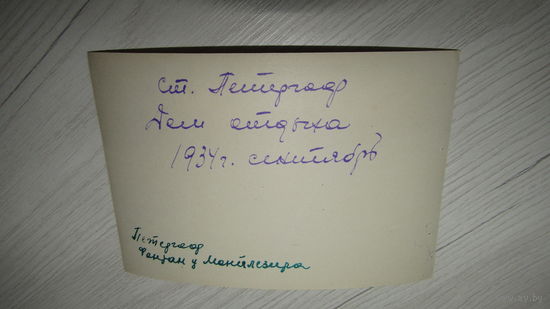 ст. Петергоф
Дом отдыха
1934 г. сентябрь
Петергоф
Фонтан у Монплезира
ay.by